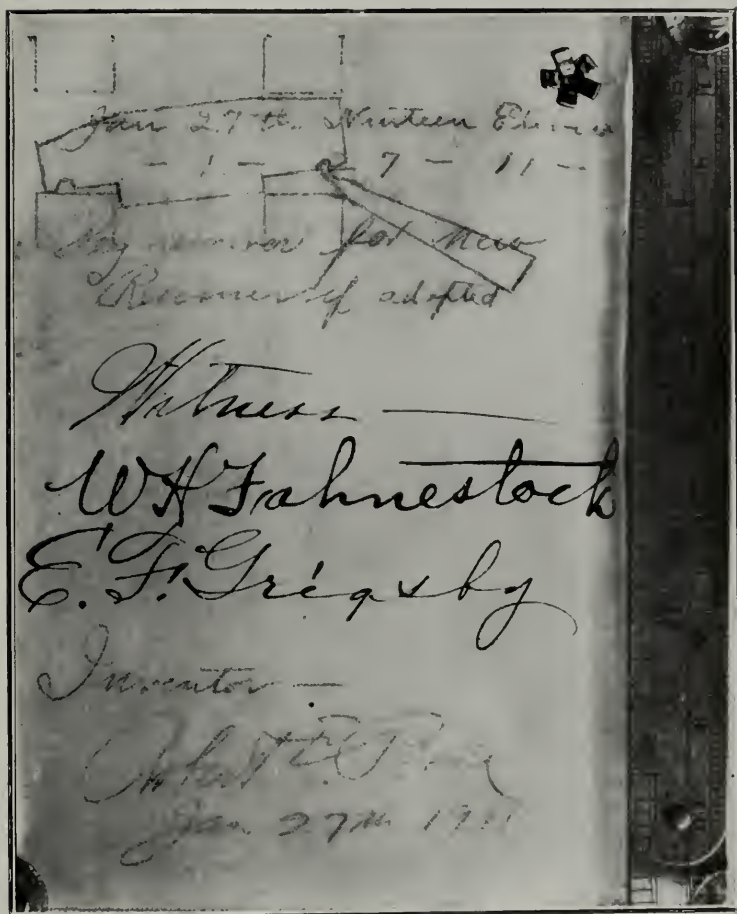 Jan 27th Ninteen Eleven
- 1 - 7 - 11 -
My for new
if adopted
Witness —
W H Fahnestock
E. F. Grigsby
Inventor —
Jan 27th 1911